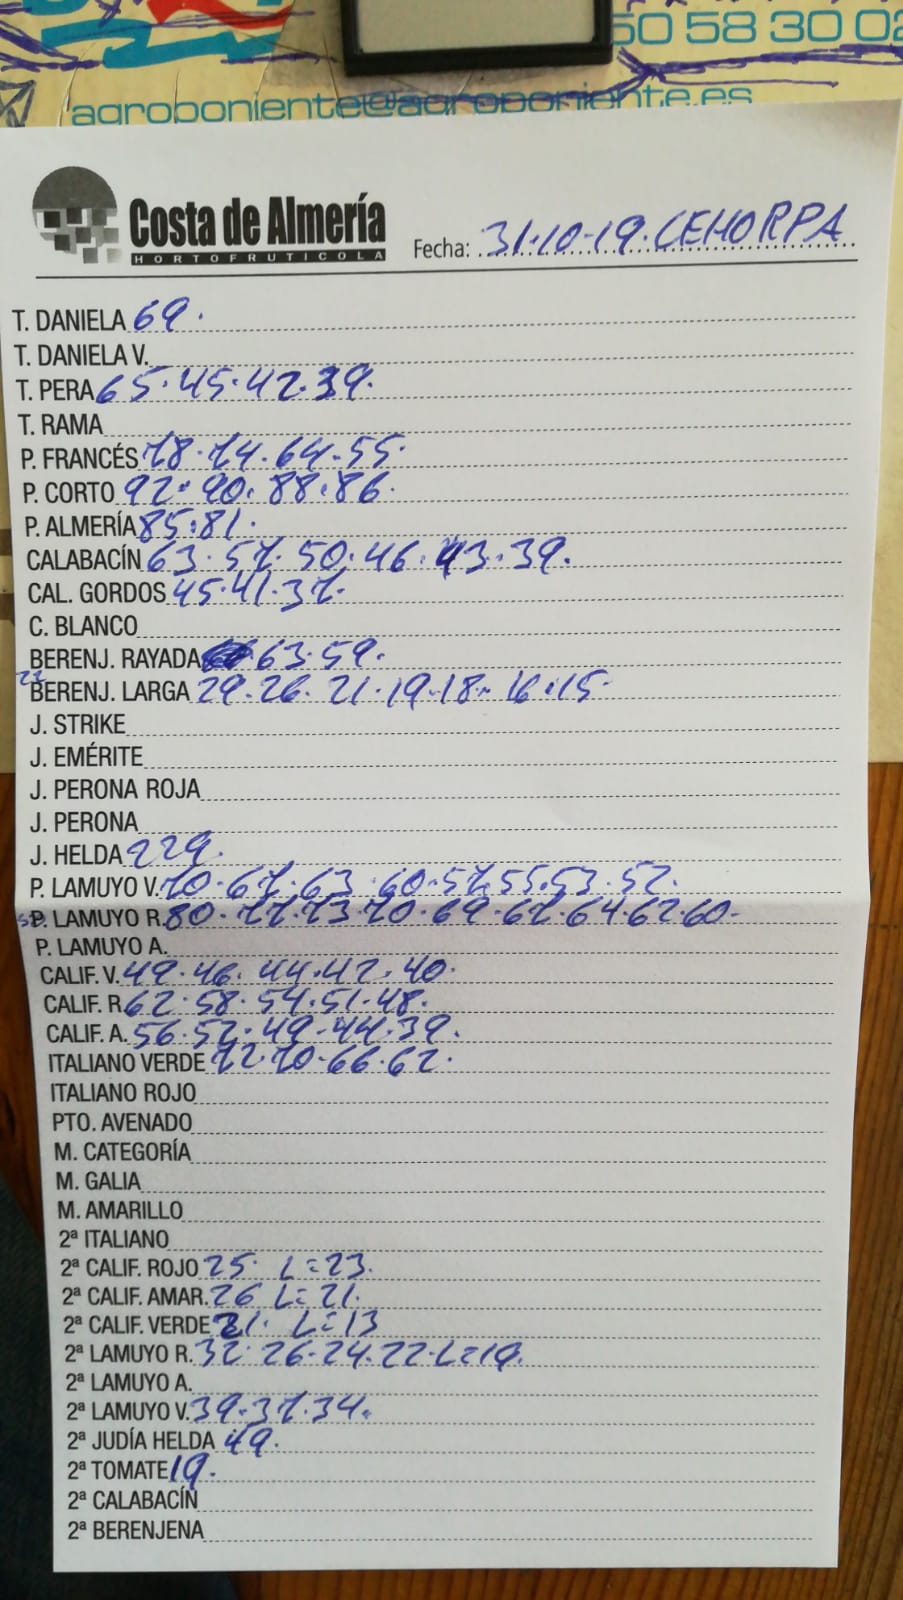 50 58 30 02
agroponiente@agroponiente.es
Costa de Almería
HORTOFRUTICOLA
Fecha: 31-10-19. CEHORPA
T. DANIELA 69.
T. DANIELA V.
T. PERA 65. 45. 42. 39.
T. RAMA
P. FRANCÉS 78. 74. 64. 55.
P. CORTO 92. 90. 88. 86.
P. ALMERÍA 85. 81.
CALABACÍN 63. 57. 50. 46. 43. 39.
CAL. GORDOS 45. 41. 37.
C. BLANCO
BERENJ. RAYADA 63. 59.
BERENJ. LARGA 29. 26. 21. 19. 18. 16. 15.
J. STRIKE
J. EMÉRITE
J. PERONA ROJA
J. PERONA
J. HELDA 229.
P. LAMUYO V. 70. 67. 63. 60. 57. 55. 53. 52.
P. LAMUYO R. 80. 77. 73. 70. 69. 67. 64. 62. 60.
P. LAMUYO A.
CALIF. V. 49. 46. 44. 42. 40.
CALIF. R. 62. 58. 54. 51. 48.
CALIF. A. 56. 52. 49. 44. 39.
ITALIANO VERDE 72. 70. 66. 62.
ITALIANO ROJO
PTO. AVENADO
M. CATEGORÍA
M. GALIA
M. AMARILLO
2ª ITALIANO
2ª CALIF. ROJO 25. L=23.
2ª CALIF. AMAR. 26 L=21.
2ª CALIF. VERDE 21. L=13
2ª LAMUYO R. 32. 26. 24. 22. L=19.
2ª LAMUYO A.
2ª LAMUYO V. 39. 37. 34.
2ª JUDÍA HELDA 49.
2ª TOMATE 19.
2ª CALABACÍN
2ª BERENJENA